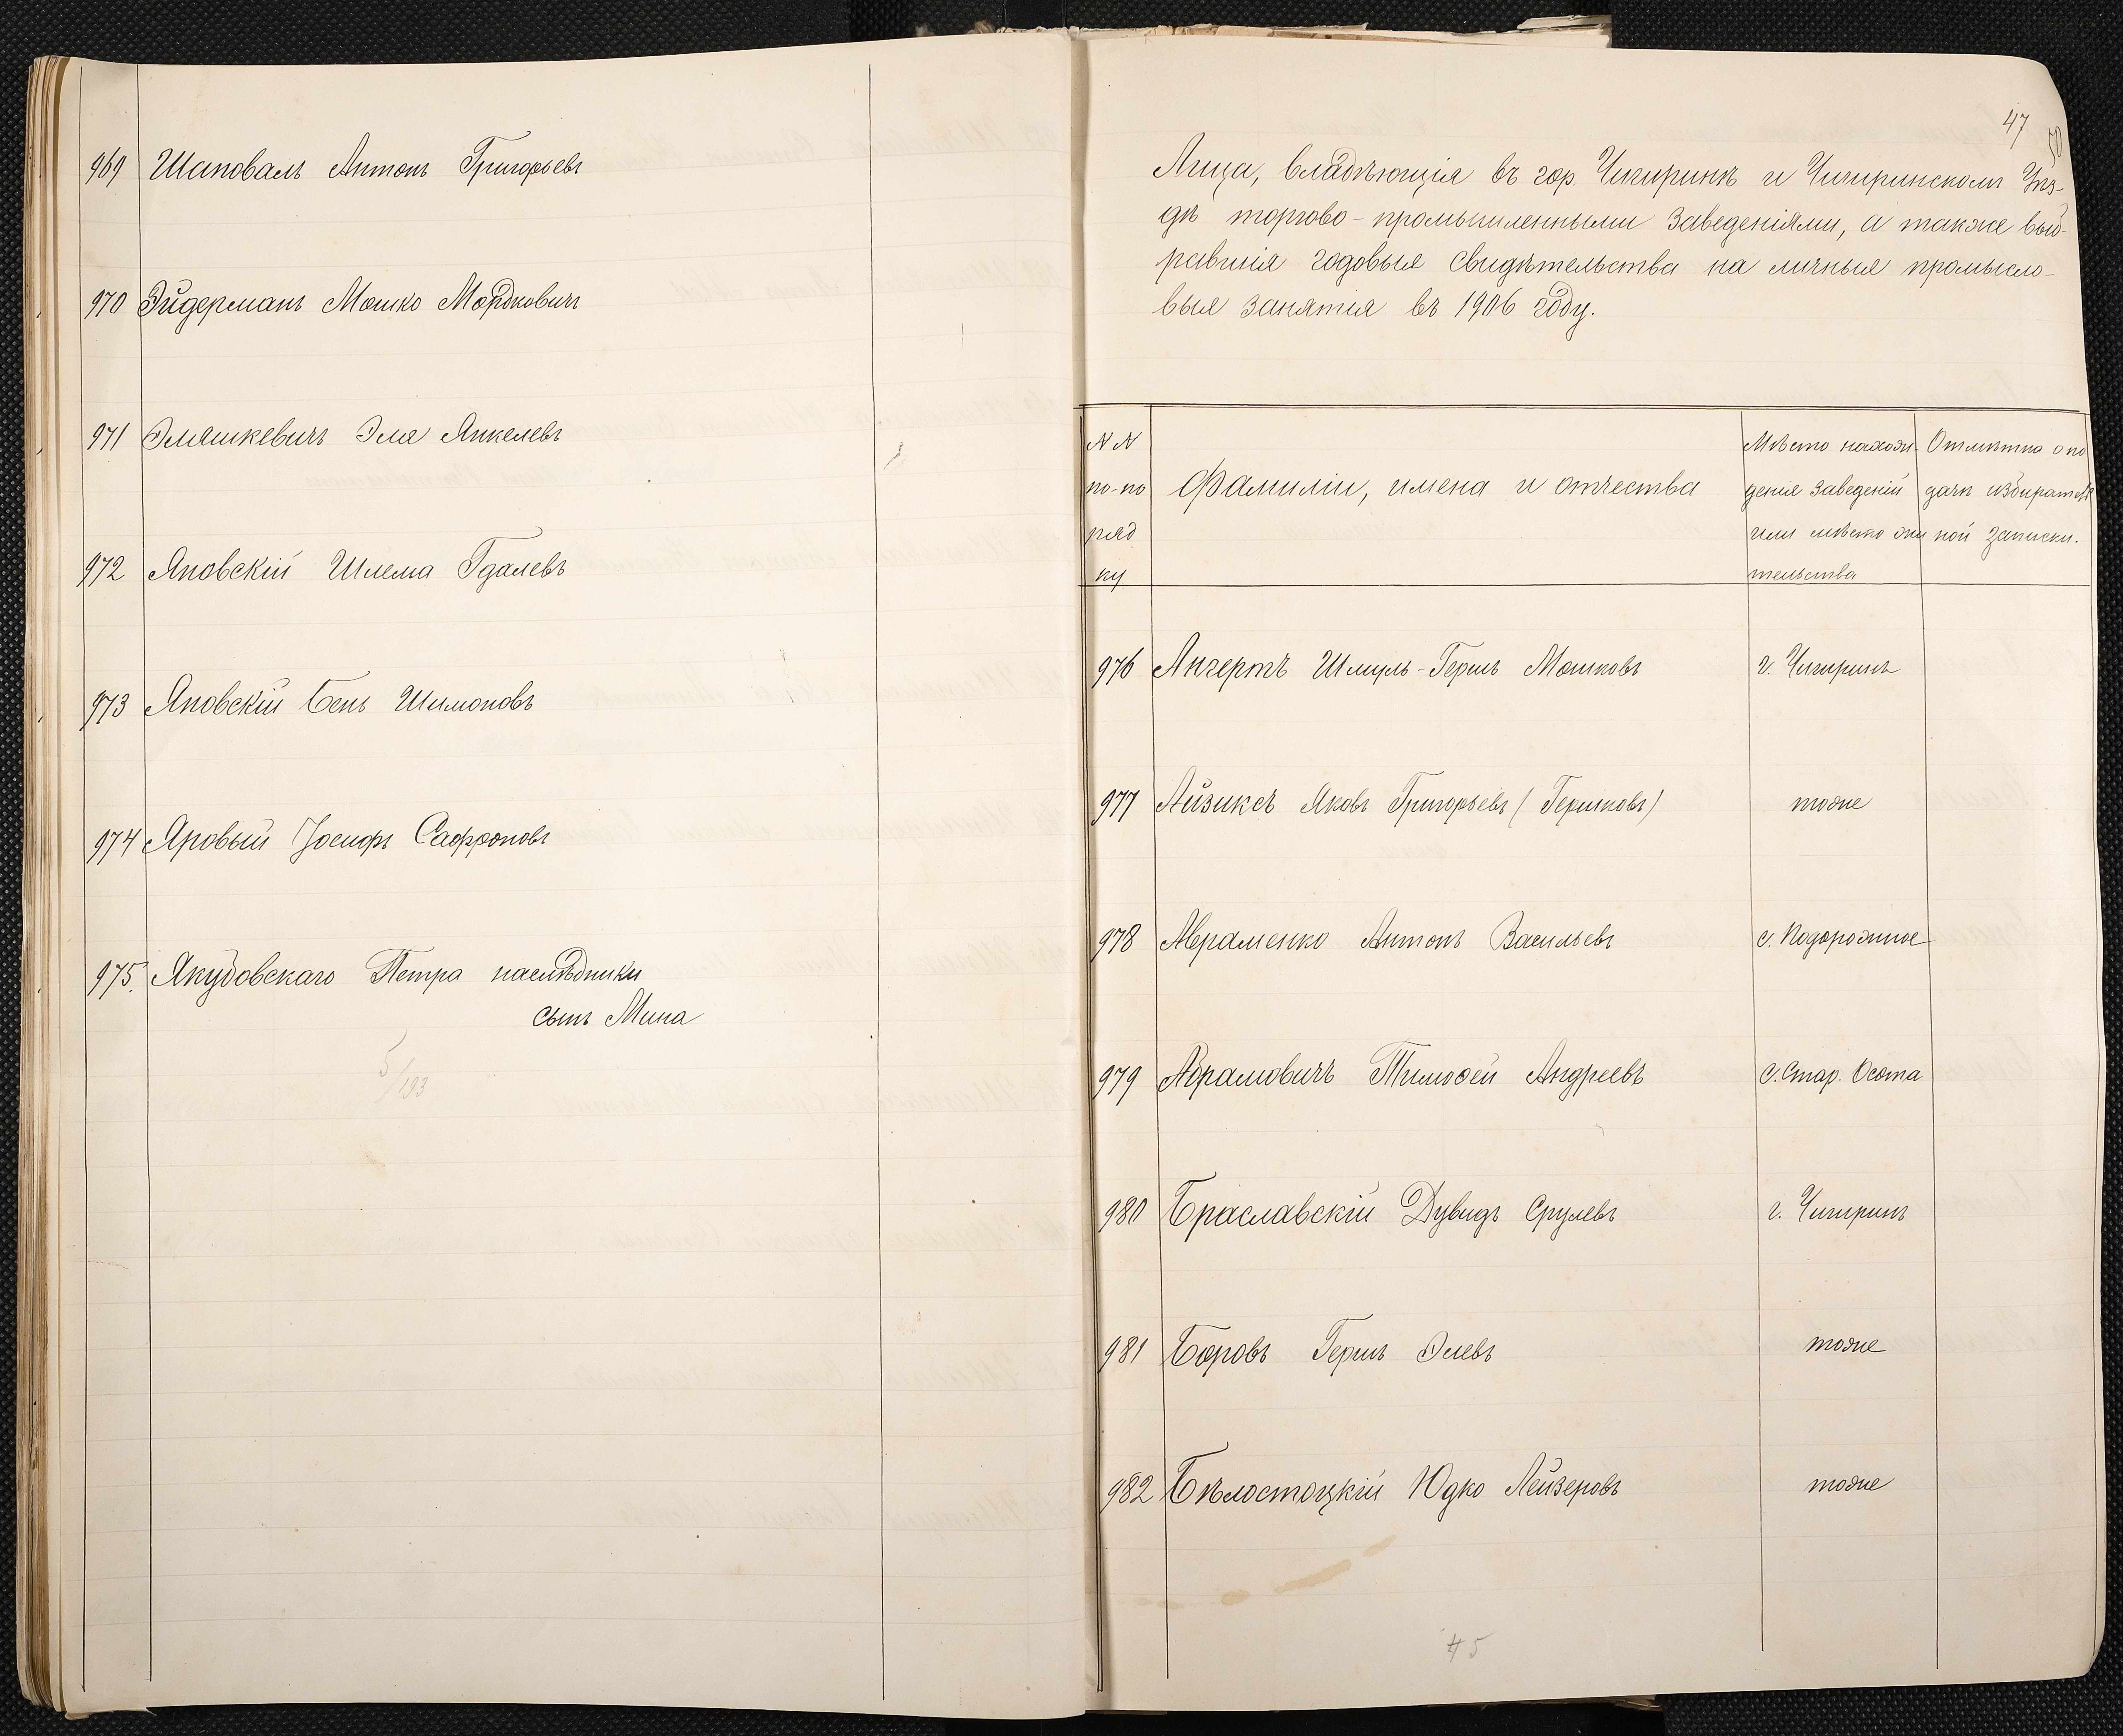 969 Шаповалъ Антонъ Григорьевъ
970 Эйдерманъ Мошко Мордковичъ
971 Эляшкевичъ Эля Янкелевъ
972 Яновскій Шлема Гдалевъ
973 Яновскій Бень Шимоновъ
974 Яровый Іосифъ Сафроновъ
975. Якубовскаго Петра наслѣдники
сынъ Мина
5/193
47
Лица, владѣющія въ гор. Чигиринѣ и Чигиринскомъ Уѣз-
дѣ торгово-промышленными заведеніями, а также выб-
равшія годовыя свидѣтельства на личныя промысло-
выя занятія въ 1906 году.
NN
по-по
ряд
ку
Фамиліи, имена и отчества
Мѣсто нахож-
денія заведеній
или мѣсто жи
тельства
Отмѣтка о по
дачѣ избирател
ной записки.
976 Ангертъ Шмуль-Гершъ Мошковъ г. Чигиринъ
977 Айзиксъ Яковъ Григорьевъ (Гершковъ) тоже
978 Авраменко Антонъ Васильевъ с. Подорожное
979 Абрамовичъ Тимоѳей Андреевъ с. Стар. Осота
980 Браславскій Дувидъ Срулевъ г. Чигиринъ
981 Боровъ Гершъ Элевъ тоже
982 Бѣлостоцкій Юдко Лейзеровъ тоже
45